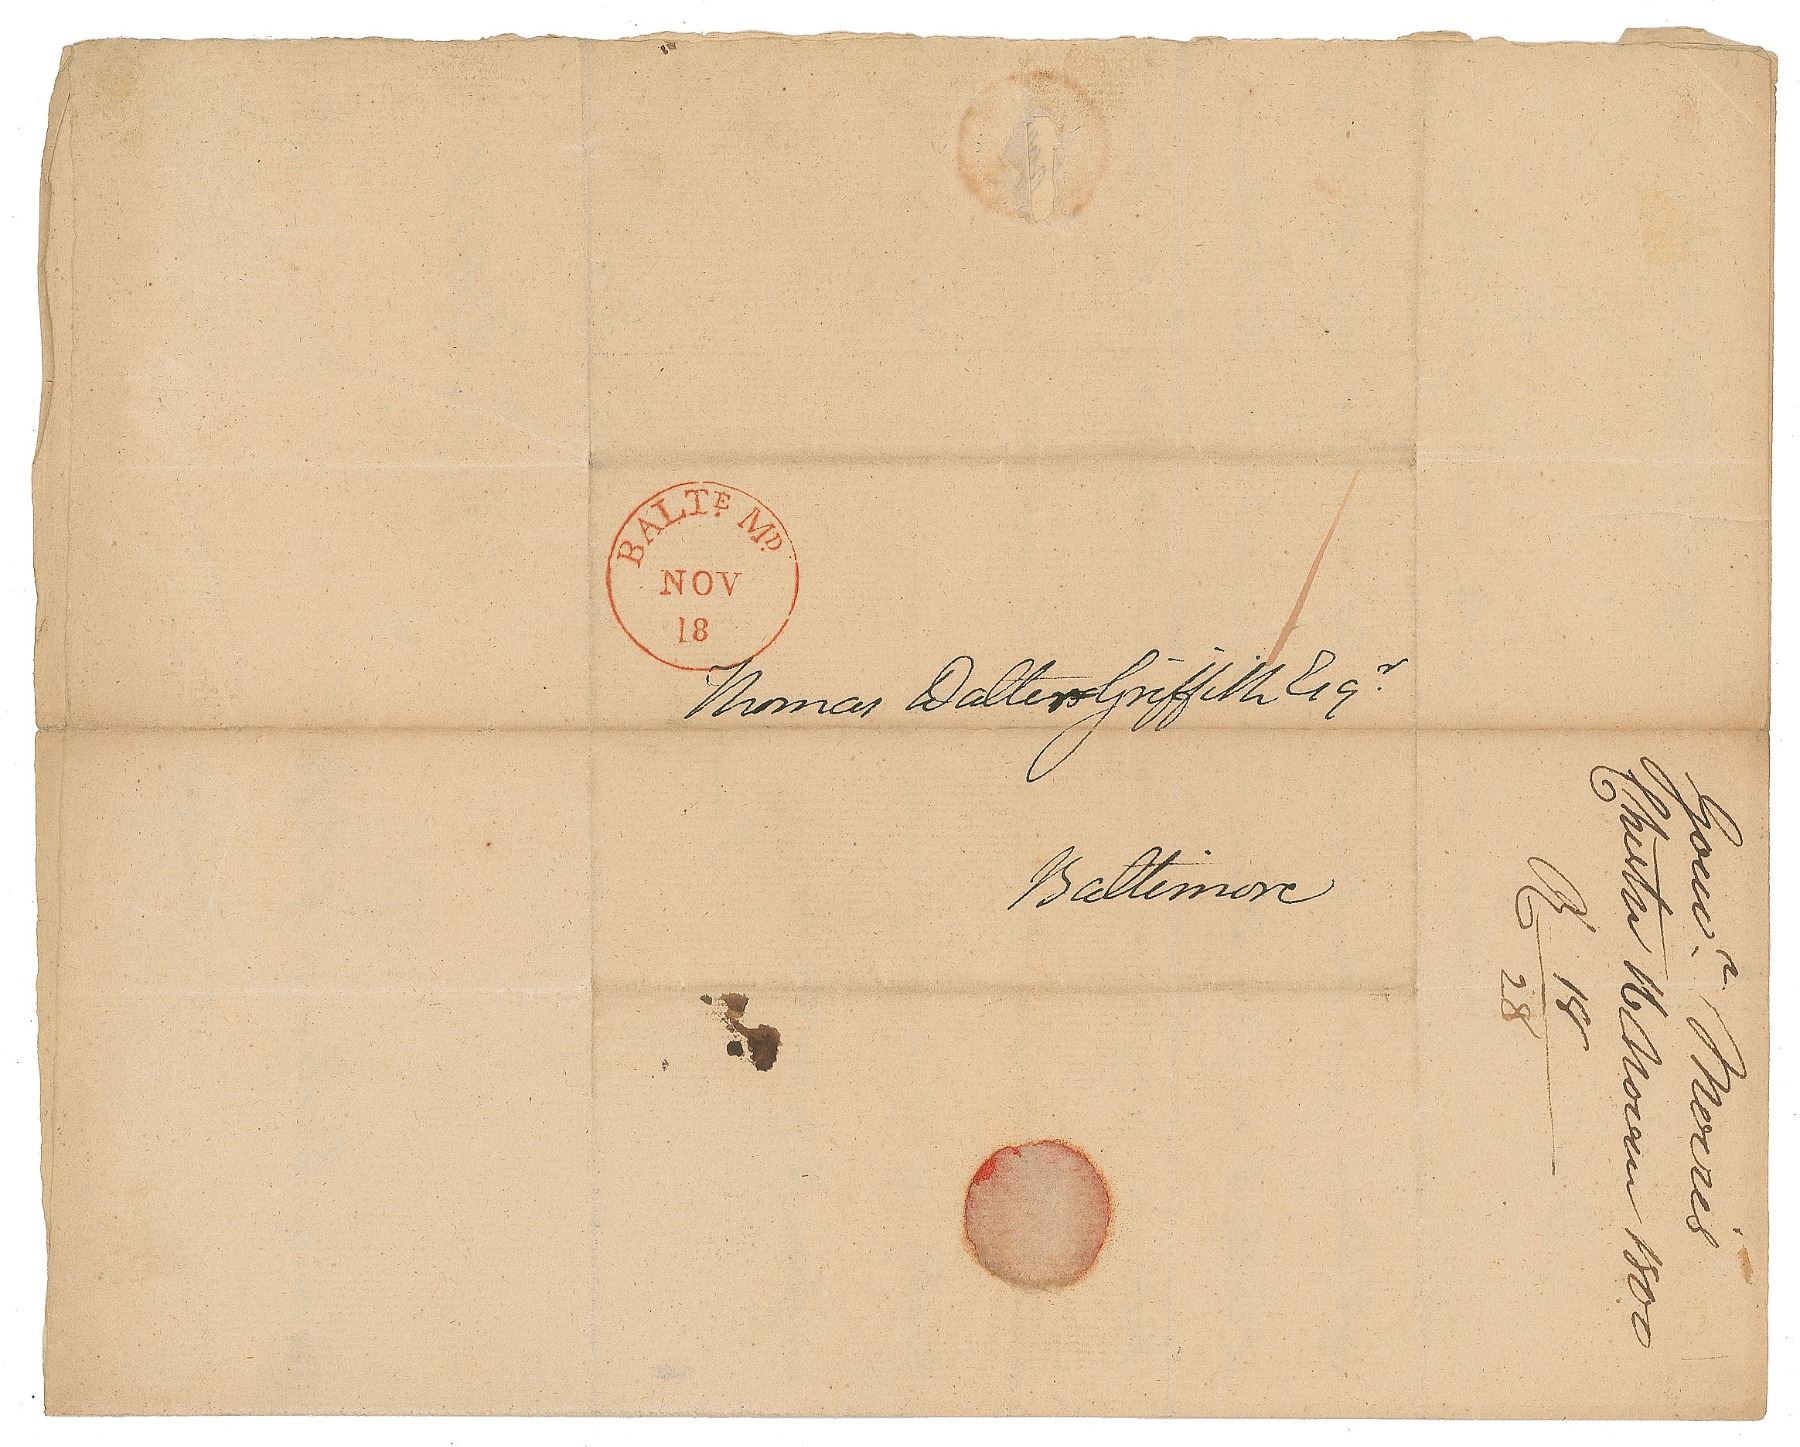 BALTE MD
NOV
18
Thomas Walters Griffith Esqr.
Baltimore
Gouvr. Morris
Chester Novem 1800
R 18
28